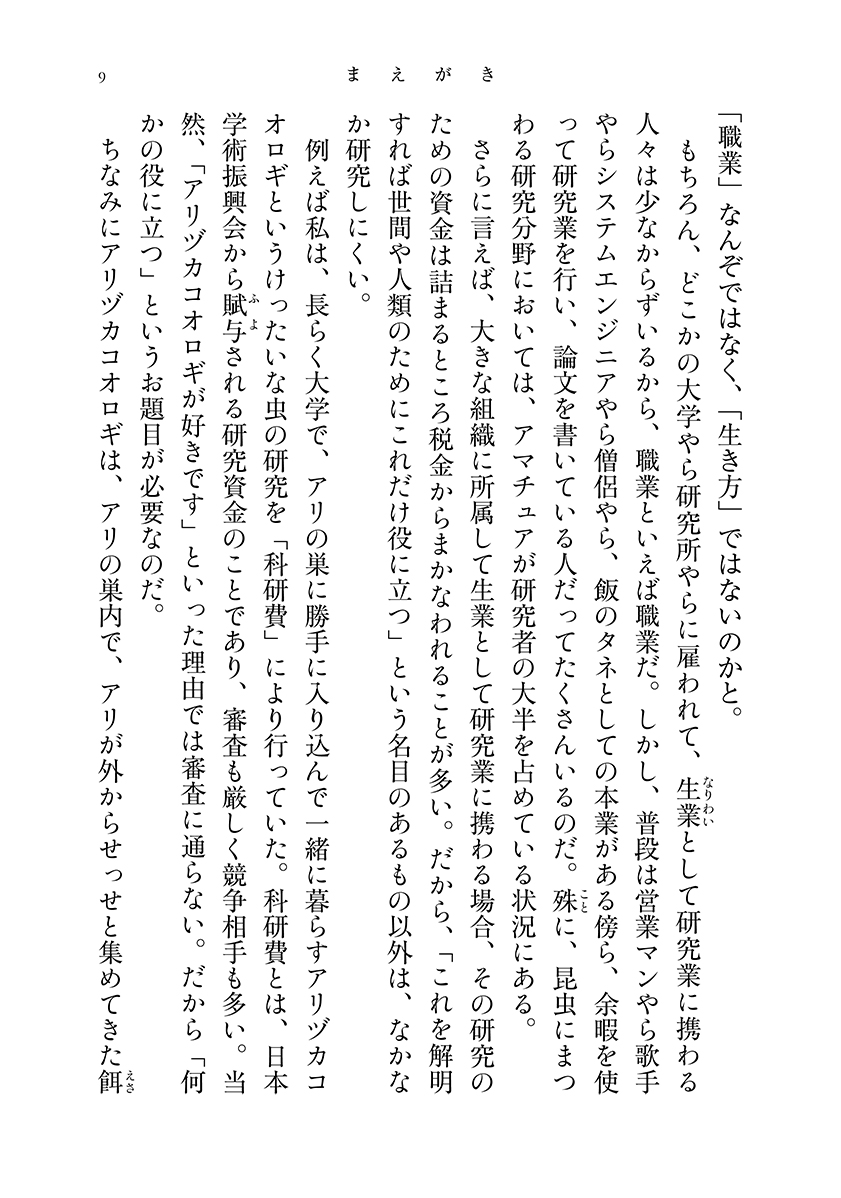 9
まえがき
「職業」なんぞではなく、「生き方」ではないのかと。
もちろん、どこかの大学やら研究所やらに雇われて、生業として研究業に携わる
なりわい
人々は少なからずいるから、職業といえば職業だ。しかし、普段は営業マンやら歌手
やらシステムエンジニアやら僧侶やら、飯のタネとしての本業がある傍ら、余暇を使
って研究業を行い、論文を書いている人だってたくさんいるのだ。殊に、昆虫にまつ
こと
わる研究分野においては、アマチュアが研究者の大半を占めている状況にある。
さらに言えば、大きな組織に所属して生業として研究業に携わる場合、その研究の
ための資金は詰まるところ税金からまかなわれることが多い。だから、「これを解明
すれば世間や人類のためにこれだけ役に立つ」という名目のあるもの以外は、なかな
か研究しにくい。
例えば私は、長らく大学で、アリの巣に勝手に入り込んで一緒に暮らすアリヅカコ
オロギというけったいな虫の研究を「科研費」により行っていた。科研費とは、日本
学術振興会から賦与される研究資金のことであり、審査も厳しく競争相手も多い。当
ふよ
然、「アリヅカコオロギが好きです」といった理由では審査に通らない。だから「何
かの役に立つ」というお題目が必要なのだ。
ちなみにアリヅカコオロギは、アリの巣内で、アリが外からせっせと集めてきた餌
えさ